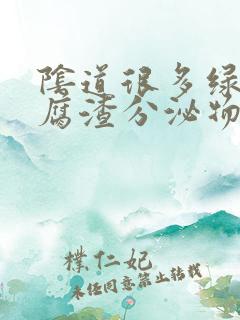 陰道很多绿
腐渣分泌物
樸仁妃
未经同意禁止转载